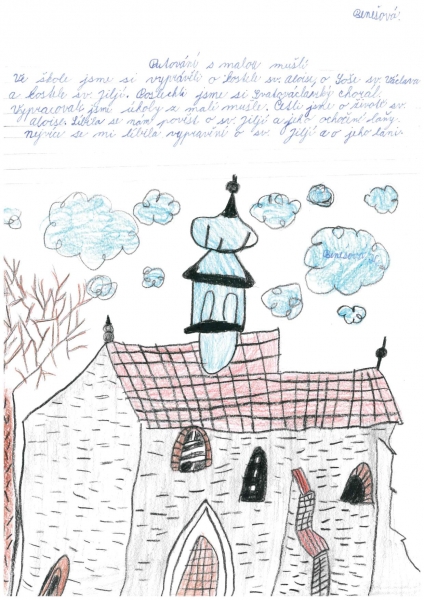 Benešová.
Putování s malou mušlí
Ve škole jsme si vyprávěli o kostele sv. Aloise, o soše sv. Václava
a kostele sv. Jiljí. Poslechli jsme si Svatováclavský chorál.
Vypracovali jsme úkoly z malé mušle. Četli jsme o životě sv.
Aloise. Líbila se nám pověst o sv. Jiljí a jeho ochočení laňy.
Nejvíce se mi líbila vypravění o sv. Jiljí a o jeho láni.
Benešová